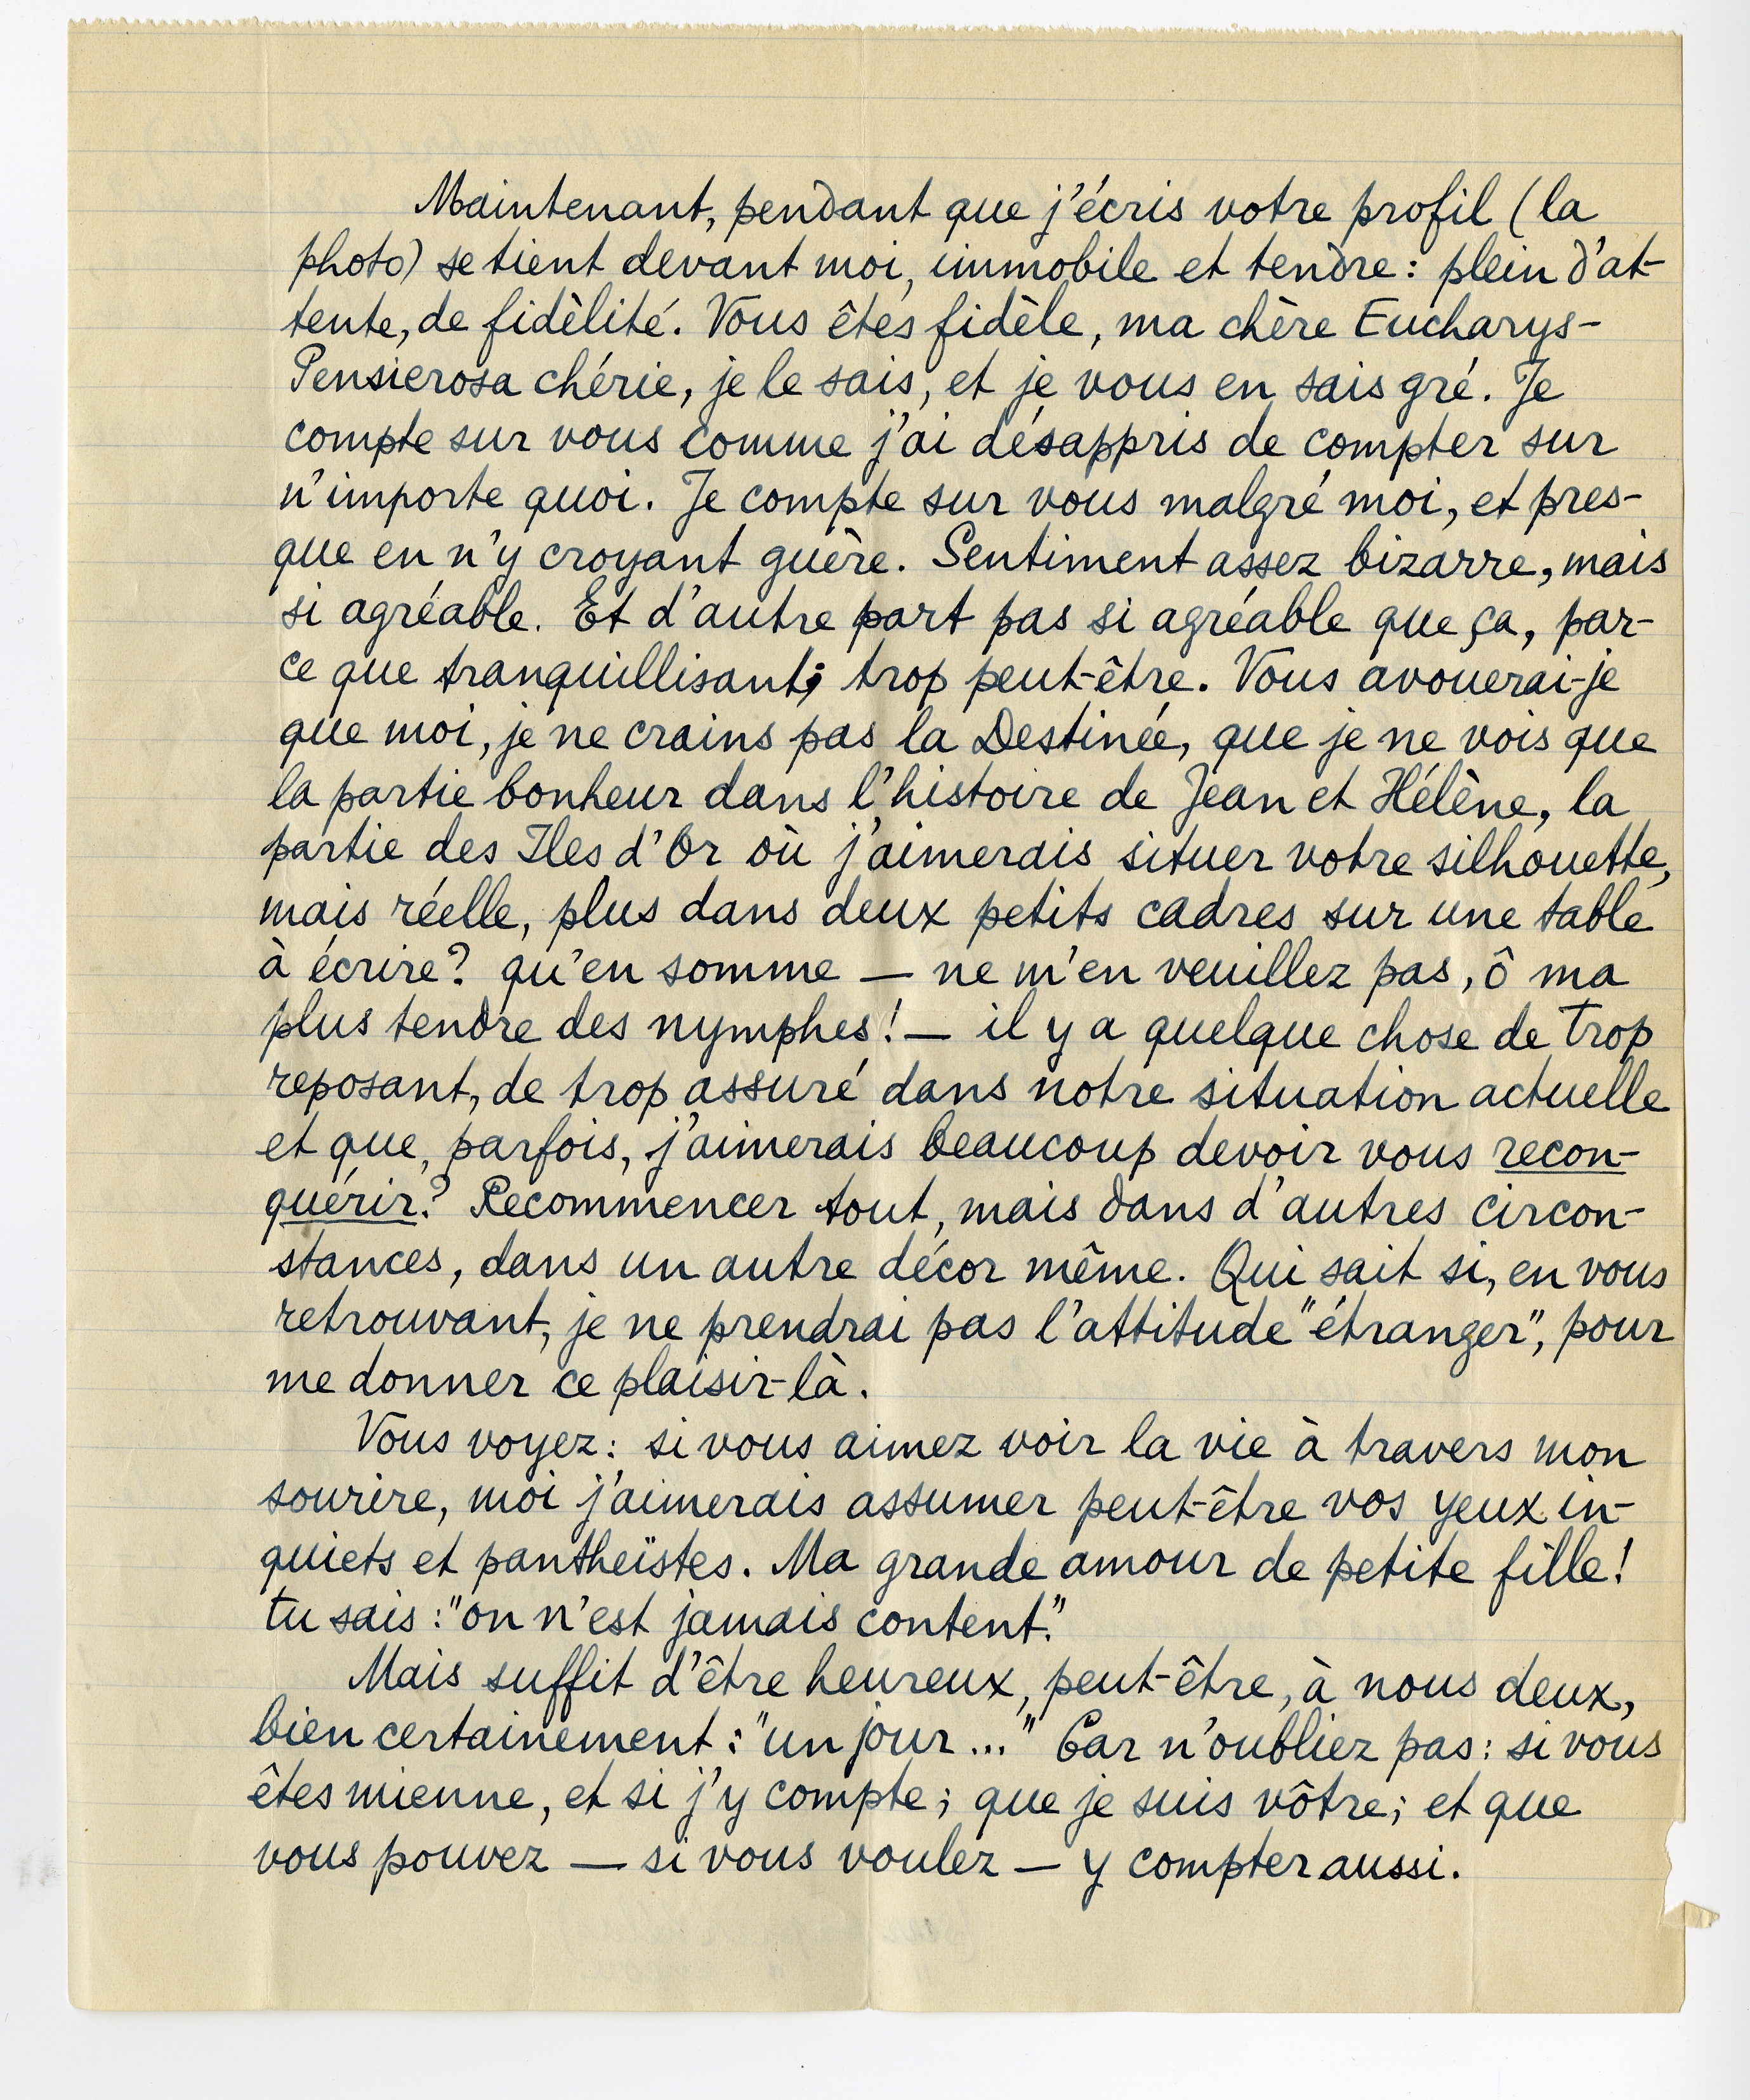 Maintenant, pendant que j'écris votre profil (la
photo) se tient devant moi, immobile et tendre: plein d'at-
tente, de fidèlité. Vous êtes fidèle, ma chère Eucharys-
Pensierosa chérie, je le sais, et je vous en sais gré. Je
compte sur vous comme j'ai désappris de compter sur
n'importe quoi. Je compte sur vous malgré moi, et pres-
que en n'y croyant guère. Sentiment assez bizarre, mais
si agréable. Et d'autre part pas si agréable que ça, par-
ce que tranquillisant; trop peut-être. Vous avouerai-je
que moi, je ne crains pas la Destinée, que je ne vois que
la partie bonheur dans l'histoire de Jean et Hélène, la
partie des Iles d'Or où j'aimerais situer votre silhouette,
mais réelle, plus dans deux petits cadres sur une table
à écrire? qu'en somme — ne m'en veuillez pas, ô ma
plus tendre des nymphes! — il y a quelque chose de trop
reposant, de trop assuré dans notre situation actuelle
et que, parfois, j'aimerais beaucoup devoir vous recon-
quérir? Recommencer tout, mais dans d'autres circon-
stances, dans un autre décor même. Qui sait si, en vous
retrouvant, je ne prendrai pas l'attitude "étranger", pour
me donner ce plaisir-là.
Vous voyez: si vous aimez voir la vie à travers mon
sourire, moi j'aimerais assumer peut-être vos yeux in-
quiets et pantheïstes. Ma grande amour de petite fille!
tu sais: "on n'est jamais content."
Mais suffit d'être heureux, peut-être, à nous deux,
bien certainement: "un jour..." Car n'oubliez pas: si vous
êtes mienne, et si j'y compte; que je suis vôtre; et que
vous pouvez — si vous voulez — y compter aussi.